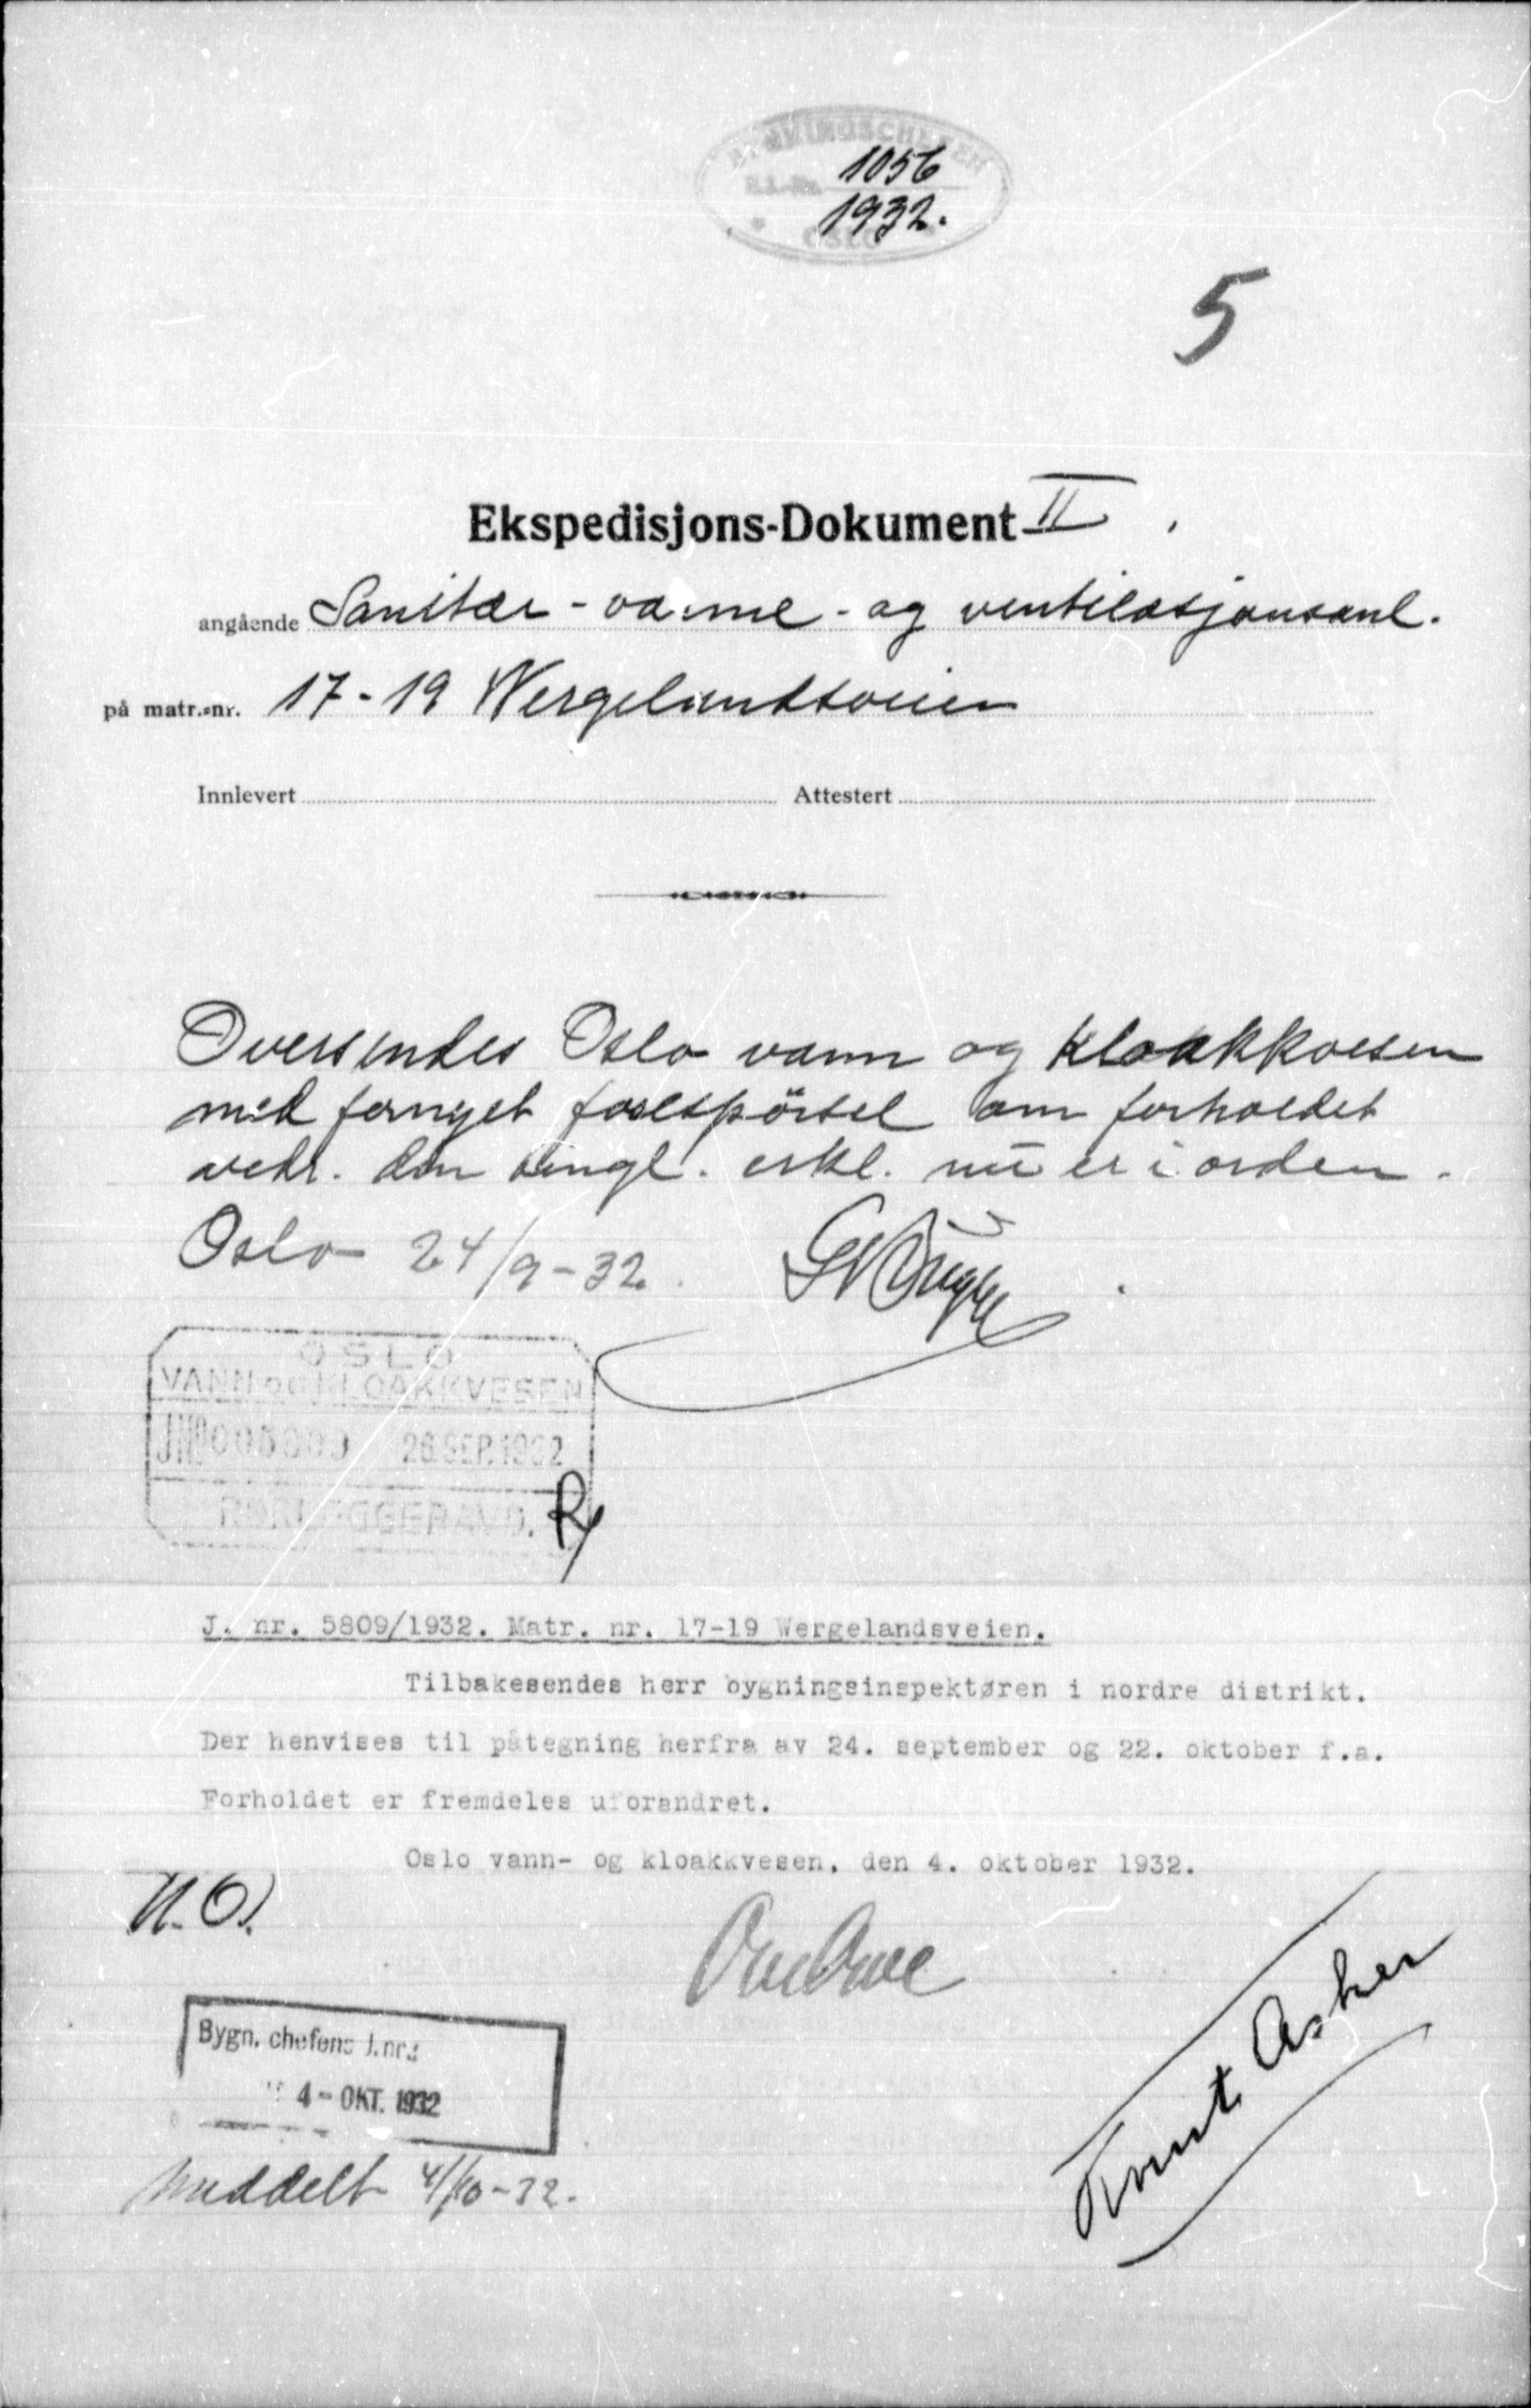 BYGNINGSCHEFEN
1056
1932.
OSLO
5
Ekspedisjons-Dokument II.
angående Sanitær - varme - og ventilasjonsanl.
på matr.-nr. 17-19 Wergelandsveien
Innlevert Attestert
Oversendes Oslo vann og kloakkvesen
med fornyet forespörsel om forholdet
vedr. den tingl. erkl. nu er i orden.
Oslo 24/9-32.
OSLO
VANN OG KLOAKKVESEN
26 SEP. 1932
RØRLEGGERAVD.
J. nr. 5809/1932. Matr. nr. 17-19 Wergelandsveien.
Tilbakesendes herr bygningsinspektøren i nordre distrikt.
Der henvises til påtegning herfra av 24. september og 22. oktober f.a.
Forholdet er fremdeles uforandret.
Oslo vann- og kloakkvesen, den 4. oktober 1932.
N.O.
Bygn. chefens J.nr.:
4 - OKT. 1932
Meddelt 4/10-32.
Knut Asker